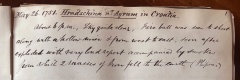 May 26. 1751. Hraschina nr Agram in Croatia.
about 6 p.m. Sky quite clear. Fire ball was seen to shoot
along with a hollow noise from west to east, & soon after
exploded with very loud report accompanied by smoke
from which 2 masses of iron fell to the earth